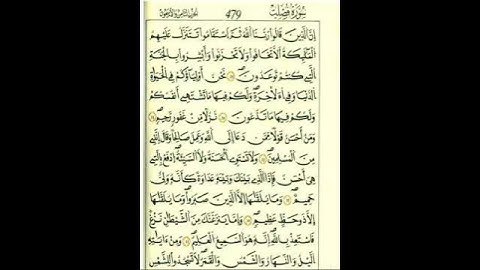 سُورَةُ فُصِّلَتْ 479 الجُزْءُ الرَّابِعُ وَالْعِشْرُونَ
إِنَّ الَّذِينَ قَالُوا رَبُّنَا اللَّهُ ثُمَّ اسْتَقَامُوا تَتَنَزَّلُ عَلَيْهِمُ
الْمَلَٰٓئِكَةُ أَلَّا تَخَافُوا وَلَا تَحْزَنُوا وَأَبْشِرُوا بِالْجَنَّةِ
الَّتِي كُنتُمْ تُوعَدُونَ ۝ نَحْنُ أَوْلِيَاؤُكُمْ فِي الْحَيَوٰةِ
الدُّنْيَا وَفِي الْآخِرَةِ وَلَكُمْ فِيهَا مَا تَشْتَهِي أَنفُسُكُمْ
وَلَكُمْ فِيهَا مَا تَدَّعُونَ ۝ نُزُلًا مِّنْ غَفُورٍ رَّحِيمٍ ۝
وَمَنْ أَحْسَنُ قَوْلًا مِّمَّن دَعَا إِلَى اللَّهِ وَعَمِلَ صَالِحًا وَقَالَ إِنَّنِي
مِنَ الْمُسْلِمِينَ ۝ وَلَا تَسْتَوِي الْحَسَنَةُ وَلَا السَّيِّئَةُ ادْفَعْ بِالَّتِي
هِيَ أَحْسَنُ فَإِذَا الَّذِي بَيْنَكَ وَبَيْنَهُ عَدَاوَةٌ كَأَنَّهُ وَلِيٌّ
حَمِيمٌ ۝ وَمَا يُلَقَّىٰهَا إِلَّا الَّذِينَ صَبَرُوا وَمَا يُلَقَّىٰهَا
إِلَّا ذُو حَظٍّ عَظِيمٍ ۝ وَإِمَّا يَنزَغَنَّكَ مِنَ الشَّيْطَٰنِ نَزْغٌ
فَاسْتَعِذْ بِاللَّهِ إِنَّهُ هُوَ السَّمِيعُ الْعَلِيمُ ۝ وَمِنْ ءَايَٰتِهِ
الَّيْلُ وَالنَّهَارُ وَالشَّمْسُ وَالْقَمَرُ لَا تَسْجُدُوا لِلشَّمْسِ